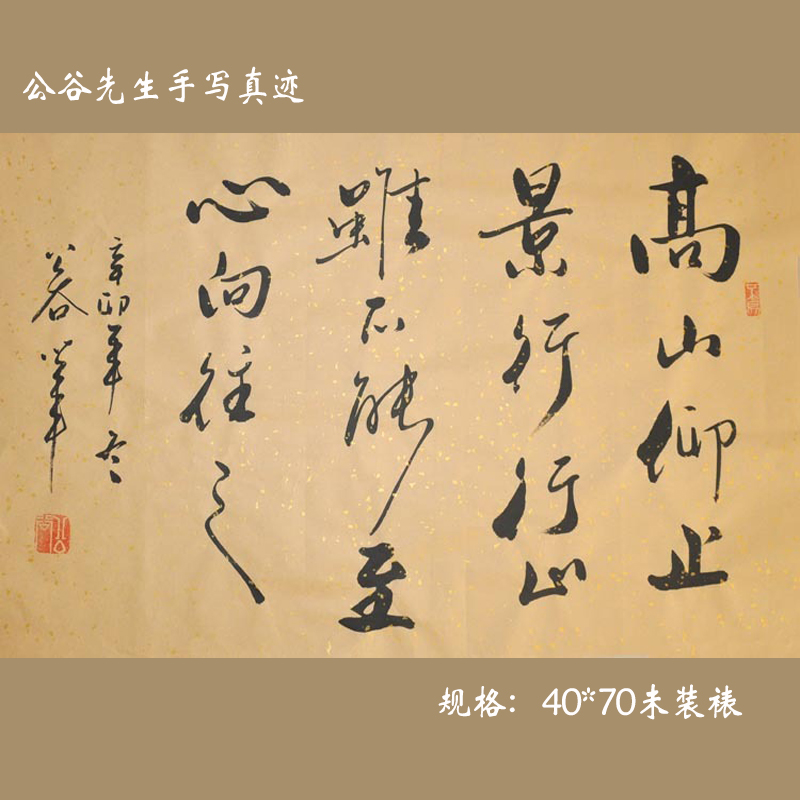 公谷先生手写真迹
高山仰止
景行行止
雖不能至
心向往之
辛卯年冬
公谷筆
规格：40*70未装裱